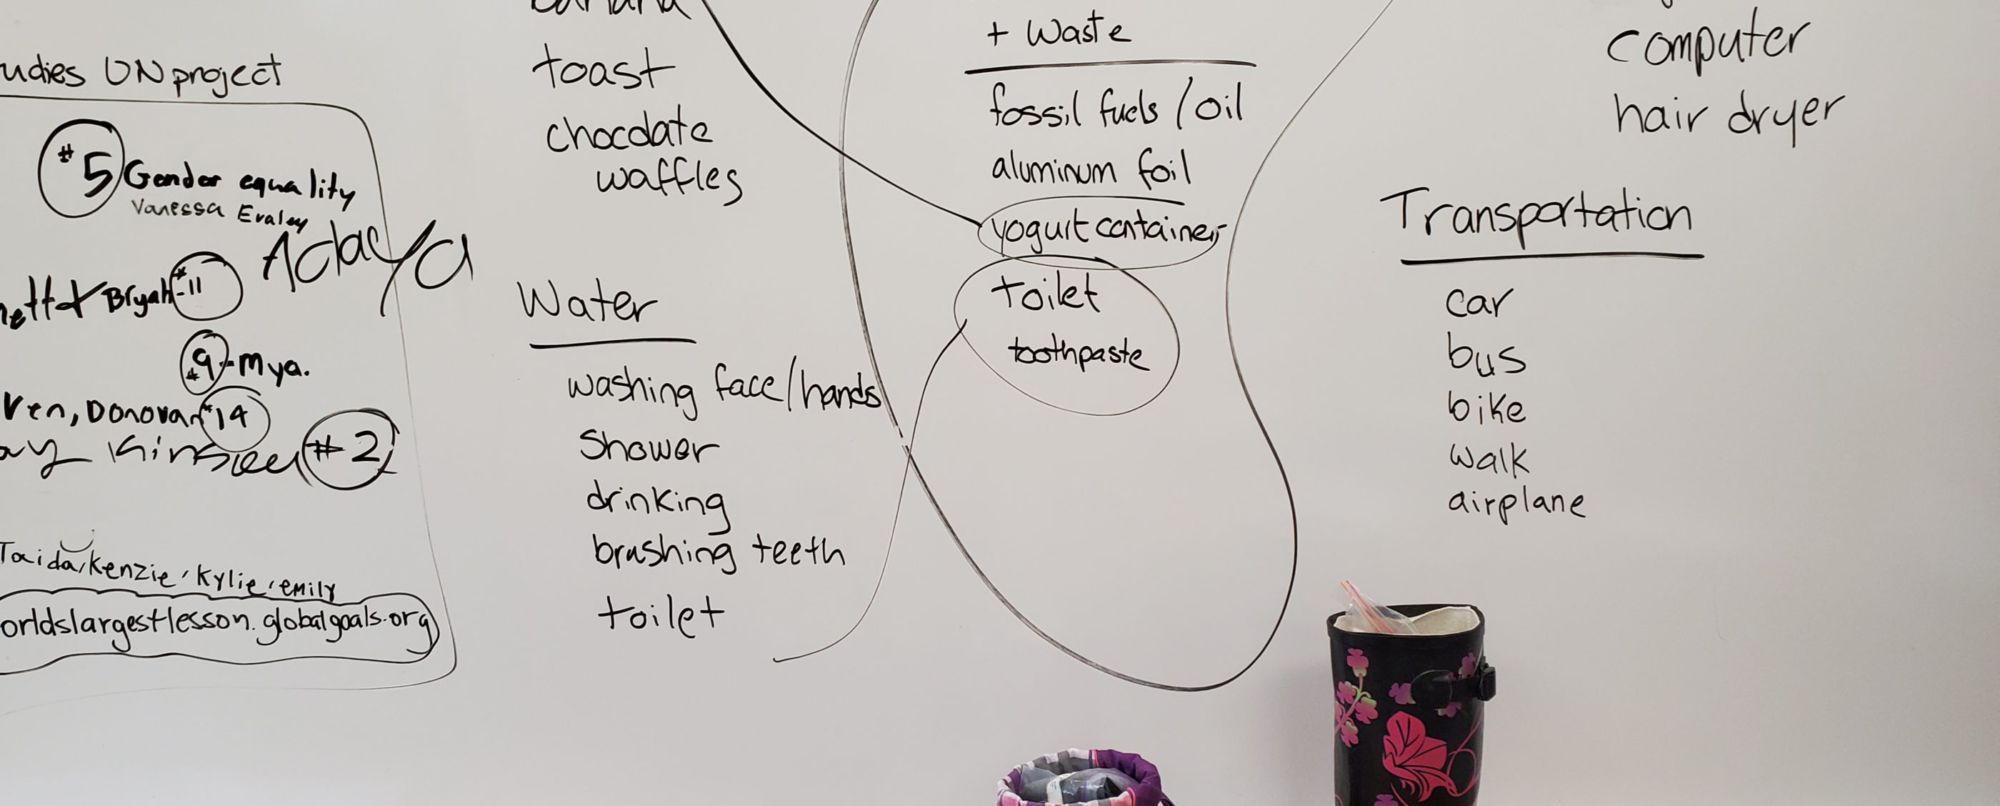 udies UN project
#5 Gender equality
Vanessa Evaley
Adaeya
Bryah #11
#9 - Mya.
ven, Donovan #14
#2
Taida, Kenzie, Kylie, emily
orldslargestlesson.globalgoals.org
banana
toast
chocolate
waffles
Water
washing face/hands
Shower
drinking
brushing teeth
toilet
+ Waste
fossil fuels / oil
aluminum foil
yogurt container
toilet
toothpaste
computer
hair dryer
Transportation
car
bus
bike
walk
airplane